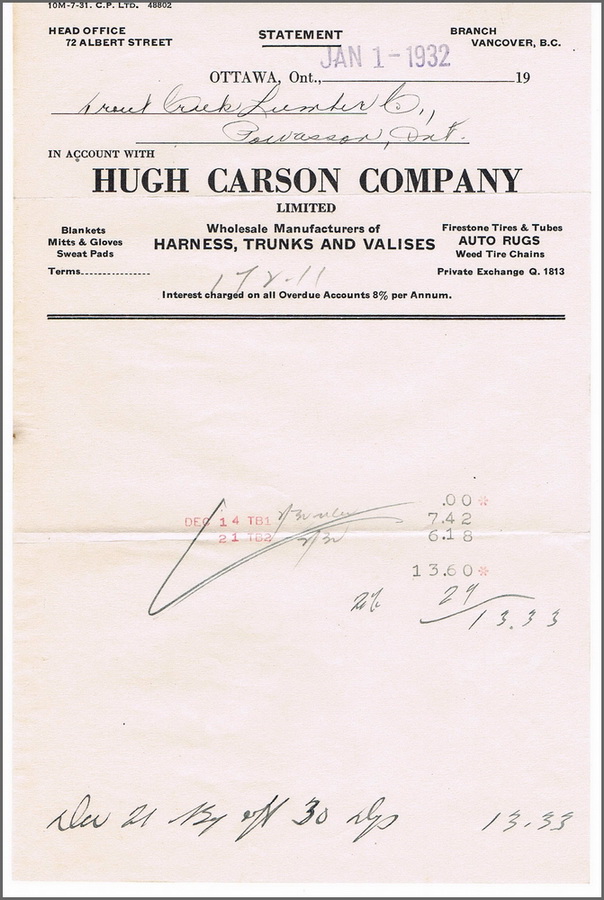 10M-7-31. C.P. LTD. 48802
HEAD OFFICE
72 ALBERT STREET
STATEMENT
BRANCH
VANCOVER, B.C.
JAN 1-1932
OTTAWA, Ont., 19
Trout Creek Lumber Co.,
Powassan, Ont.
IN ACCOUNT WITH
HUGH CARSON COMPANY
LIMITED
Blankets
Mitts & Gloves
Sweat Pads
Wholesale Manufacturers of
HARNESS, TRUNKS AND VALISES
Firestone Tires & Tubes
AUTO RUGS
Weed Tire Chains
Terms
Private Exchange Q. 1813
Interest charged on all Overdue Accounts 8% per Annum.
.00*
DEC 14 TB1 7.42
21 TB2 6.18
13.60*
2%
13.33
Dec 21 30 Dys 13.33